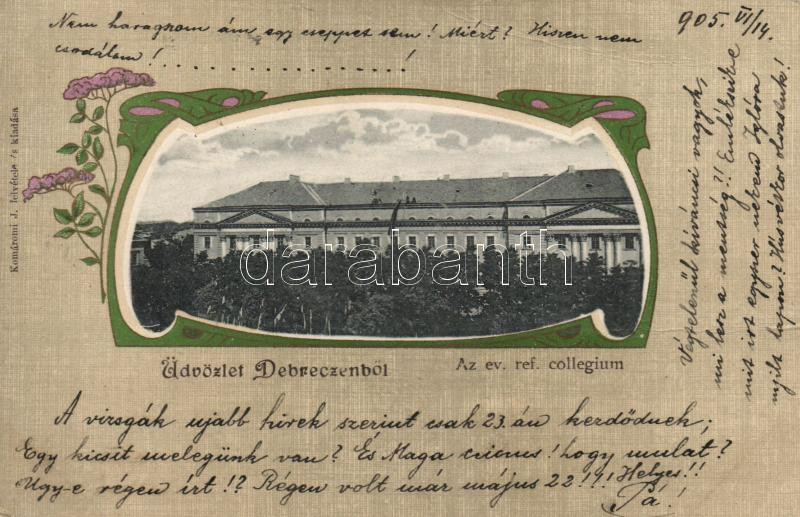 905. VI/14.
Nem haragszom ám egy cseppet sem! Miért? Hiszen nem
csodálom! . . . . . . . . . . . . . . . !
Komáromi J. felvétele 's kiadása
darabanth
Üdvözlet Debreczenből
Az ev. ref. collegium
Végtelenül kíváncsi vagyok,
mi lesz a mentség?!! Emlékszik-e
mit írt egyszer nekem Iglóra
nyílt lapon? Húsvétkor olvastuk!
A vizsgák ujabb hírek szerint csak 23.án kezdődnek;
Egy kicsit melegünk van? És Maga! hogy mulat?
Ugy-e régen írt!? Régen volt már május 22!!! Helyes!!
Pá!